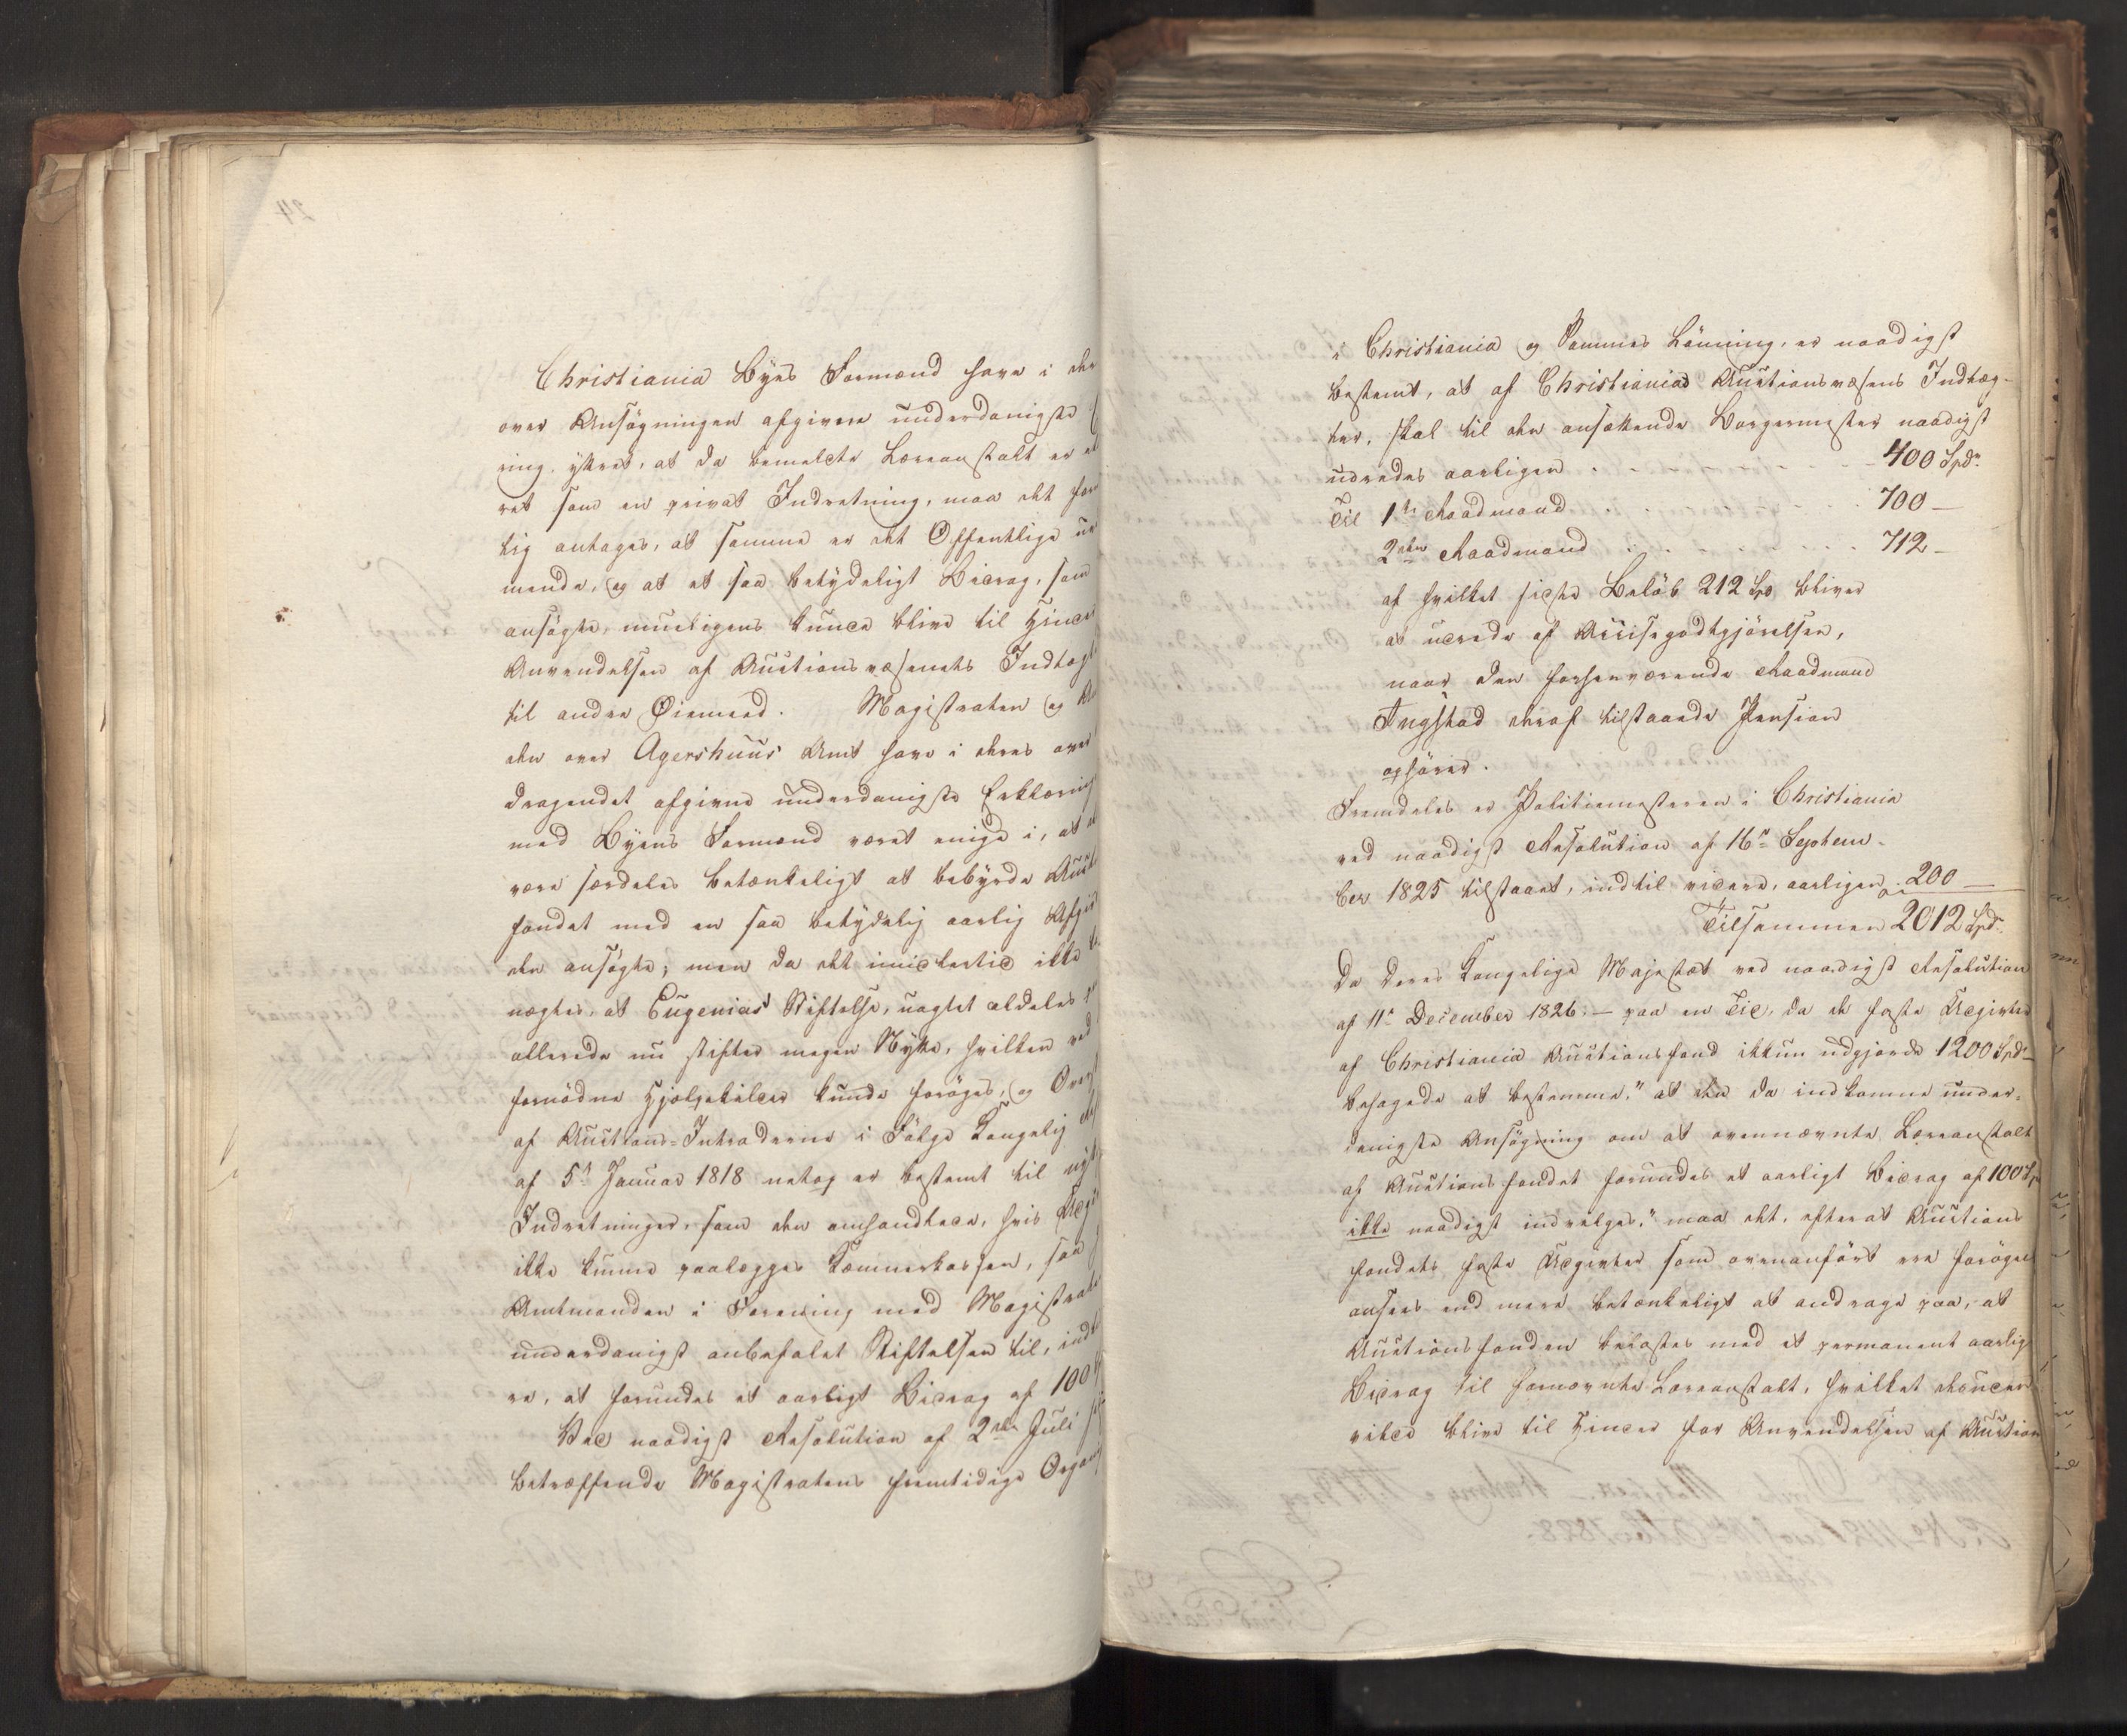 Christiania Byes Formænd have i den
over Ansøgningen afgivne underdanigste
ring, yttret, at da bemeldte Læreanstalt er
ret som en privat Indretning, maa det
lig antages, at samme er det Offentlige
mende, og at et saa betydeligt Bidrag, som
ansøgte, mueligens kunde blive til Hinder
Anvendelsen af Auctionsvæsenets Indtægt
til andre Øiemeed. Magistraten og
den over Agershuus Amt have i deres over
dragendet afgivne underdanigste Erklæring
med Byens Formænd været enige i, at
være særdeles betænkeligt at bebyrde Auct
fondet med en saa betydelig aarlig Afgift
den ansøgte; men da det imidlertid ikke
nægtes, at Eugenias Stiftelse, uagtet aldeles
allerede nu stifter megen Nytte, hvilken ved
fornødne Hjelpekilder kunde forøges, og Over
af Auctions-Intraderne i Følge Kongelig
af 5te Januar 1818 netop er bestemt til
Indretninger, som den omhandlede, hvis
ikke kunne paalægges Kæmnerkassen, saa
Amtmanden i Forening med Magistraten
underdanigst anbefalet Stiftelsen til, indt
re, at forundes et aarligt Bidrag af 100
Ved naadigst Resolution af 2den Juli
betræffende Magistratens fremtidige Organ
24
i Christiania og Sammes Lønning, er naadigst
bestemt, at af Christianias Auctionsvæsens Indtæg-
ter, skal til den ansættende Borgermester naadigst
udredes aarligen . . . 400 Spdr.
Til 1ste Raadmand . . . 700 —
2den Raadmand . . . 712 —
af hvilket sidste Beløb 212 Spd bliver
at udrede af Accisegodtgjørelsen,
naar den forhenværende Raadmand
Ingstad deraf tilstaaede Pension
ophører.
Fremdeles er Politiemesteren i Christiania
ved naadigst Resolution af 16de Septem-
ber 1825 tilstaaet, indtil videre, aarligen . 200 —
Tilsammen 2012 Spdr.
Da Deres Kongelige Majestæt ved naadigst Resolution
af 11te December 1826 — paa en Tid, da de faste Udgivter
af Christiania Auctionsfond ikkun udgjorde 1200 Spdr —
behagede at bestemme, "at den da indkomne under-
danigste Ansøgning om at ovennævnte Læreanstalt
af Auctionsfondet forundes et aarligt Bidrag af 100 Sp
ikke naadigst indvilges," maa det, efterat Auctions
fondets faste Udgivter som ovenanført ere forøgede
ansees end mere betænkeligt at andrage paa, at
Auctionsfonden belastes med et permanent aarligt
Bidrag til fornævnte Læreanstalt, hvilket desuden
vilde blive til Hinder for Anvendelsen af Auction